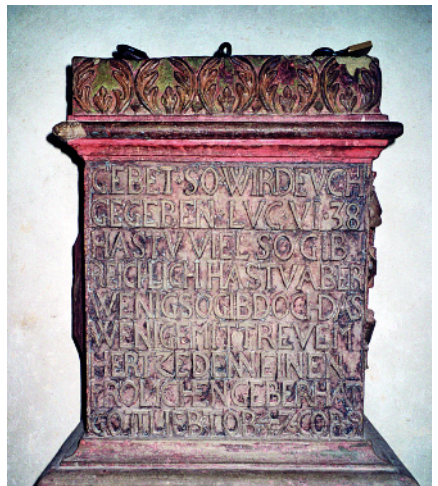 GEBET·SO·WIRDEVCH
GEGEBEN·LVC·VI·38
HASTV VIEL SO GIB
REICHLICH HASTV ABER
WENIG SO GIB DOCH DAS
WENIGE MIT TREVEM
HERTZE DENN EINEN
FROLICHEN GEBER HAT
GOTT LIEB TOB 4 2 COR 9